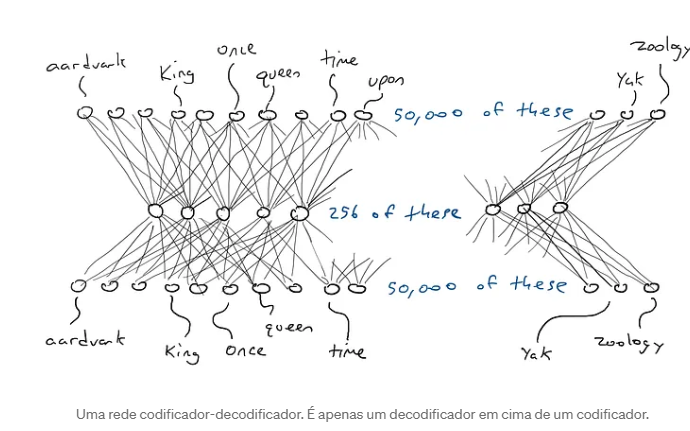 aardvark King once queen time upon Yak zoology
50,000 of these
256 of these
50,000 of these
aardvark King once queen time Yak zoology
Uma rede codificador-decodificador. É apenas um decodificador em cima de um codificador.